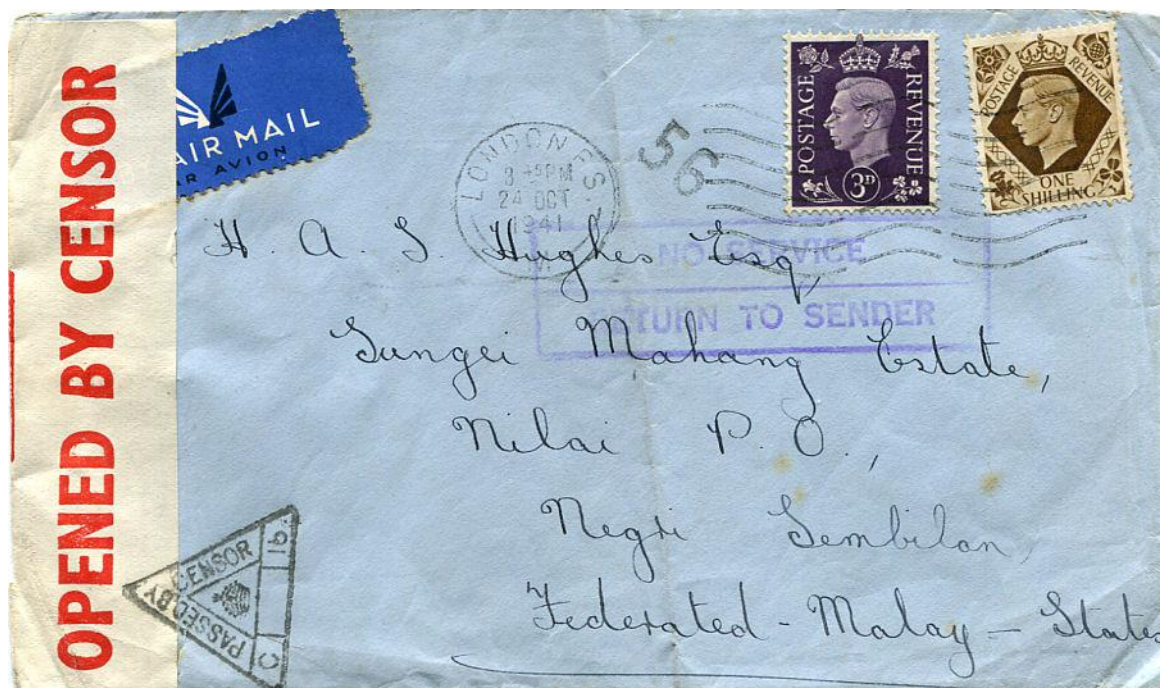 OPENED BY CENSOR
AIR MAIL
AR AVION
LONDON F.S.
8 45 PM
24 OCT
1941
56
POSTAGE REVENUE
3D
POSTAGE REVENUE
ONE
SHILLING
NO SERVICE
RETURN TO SENDER
H. A. S. Hughes Esq,
Sungei Mahang Estate,
Nilai P.O.,
Negri Sembilan,
Federated - Malay - States
PASSED BY CENSOR